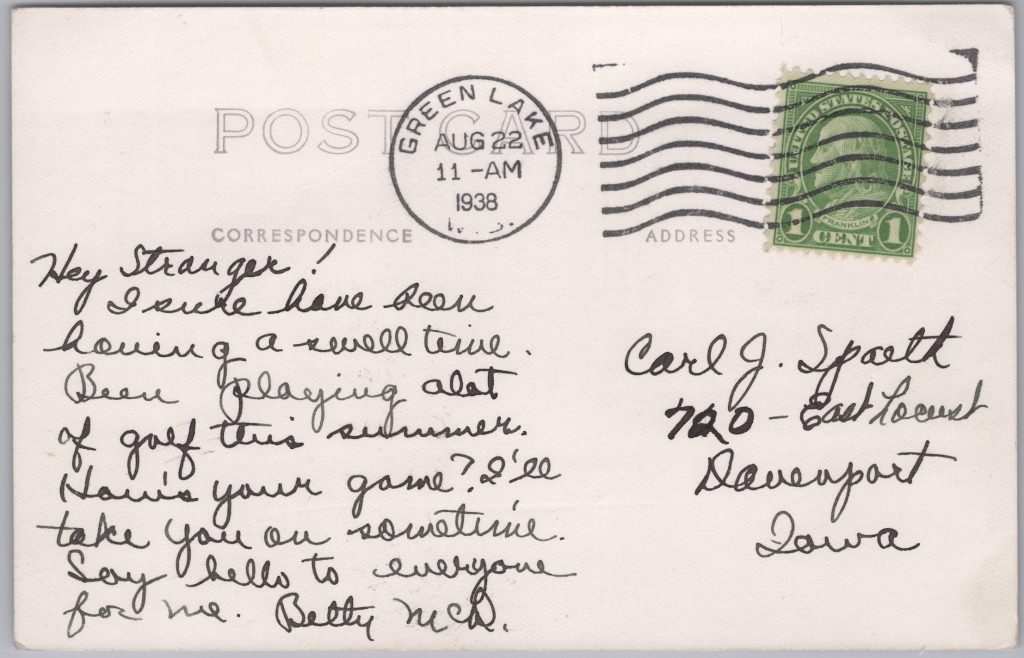 POST CARD
GREEN LAKE
AUG 22
11 -AM
1938
W. S.
UNITED STATES POSTAGE
FRANKLIN
1 CENT 1
CORRESPONDENCE
ADDRESS
Hey Stranger!
I sure have been
having a swell time.
Been playing alot
of golf this summer.
How's your game? I'll
take you on sometime.
Say hello to everyone
for me. Betty McD.
Carl J. Spaeth
720 - East Locust
Davenport
Iowa